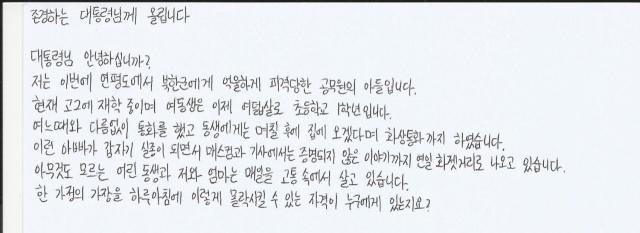 존경하는 대통령님께 올립니다
대통령님 안녕하십니까?
저는 이번에 연평도에서 북한군에게 억울하게 피격당한 공무원의 아들입니다.
현재 고2에 재학 중이며 여동생은 이제 여덟살로 초등학교 1학년입니다.
여느때와 다름없이 통화를 했고 동생에게는 며칠 후에 집에 오겠다며 화상통화까지 하였습니다.
이런 아빠가 갑자기 실종이 되면서 매스컴과 기사에서는 증명되지 않은 이야기까지 연일 화젯거리로 나오고 있습니다.
아무것도 모르는 어린 동생과 저와 엄마는 매일을 고통 속에서 살고 있습니다.
한 가정의 가장을 하루아침에 이렇게 몰락시킬 수 있는 자격이 누구에게 있는지요?